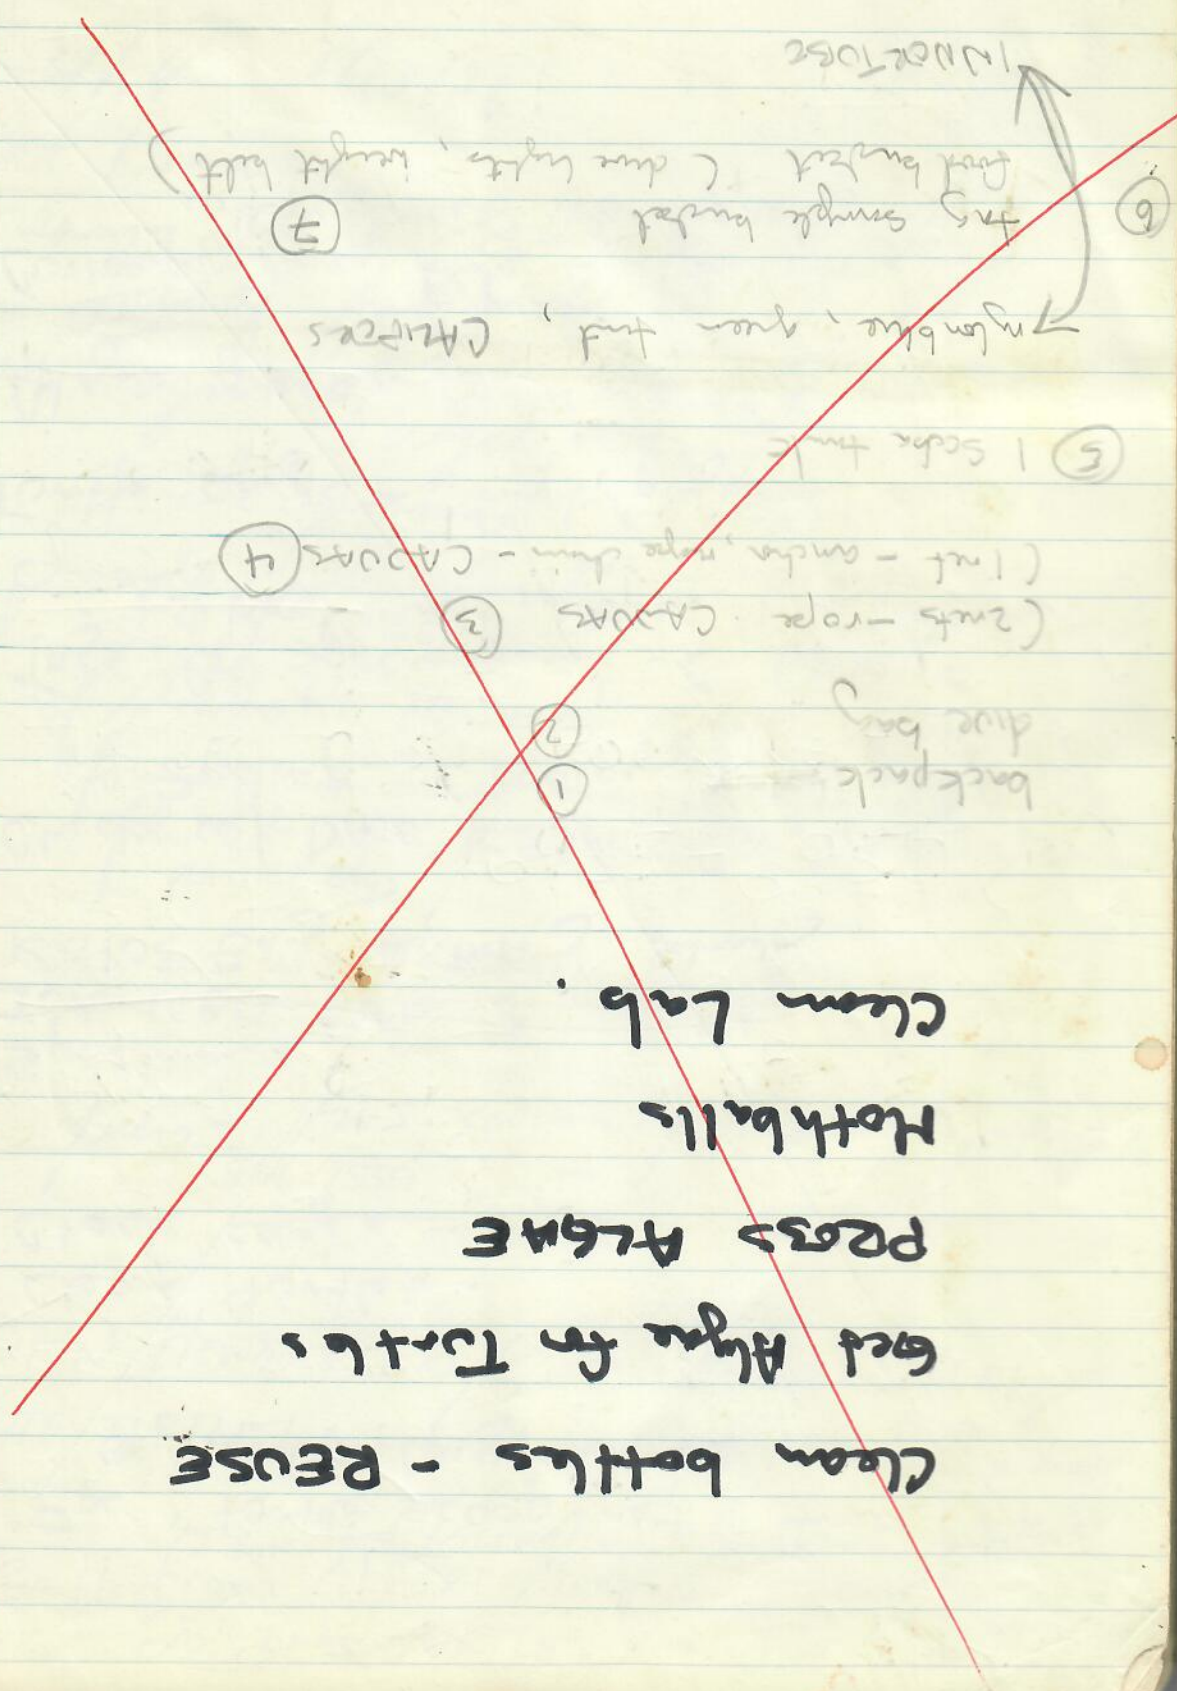 Clean bottles - REUSE
Get Algae for Turtles
PRESS ALGAE
Mothballs
Clean Lab.
backpack ①
dive bag ②
(2 nets - rope CANVAS ③
(1 net - anchor, rope chain - CANVAS ④
⑤ 1 Scuba tank
nylon blue, green twed, CALIPERS
⑥ tag sample bucket ⑦
food bucket (dive lights, weight belt)
INNERTUBE